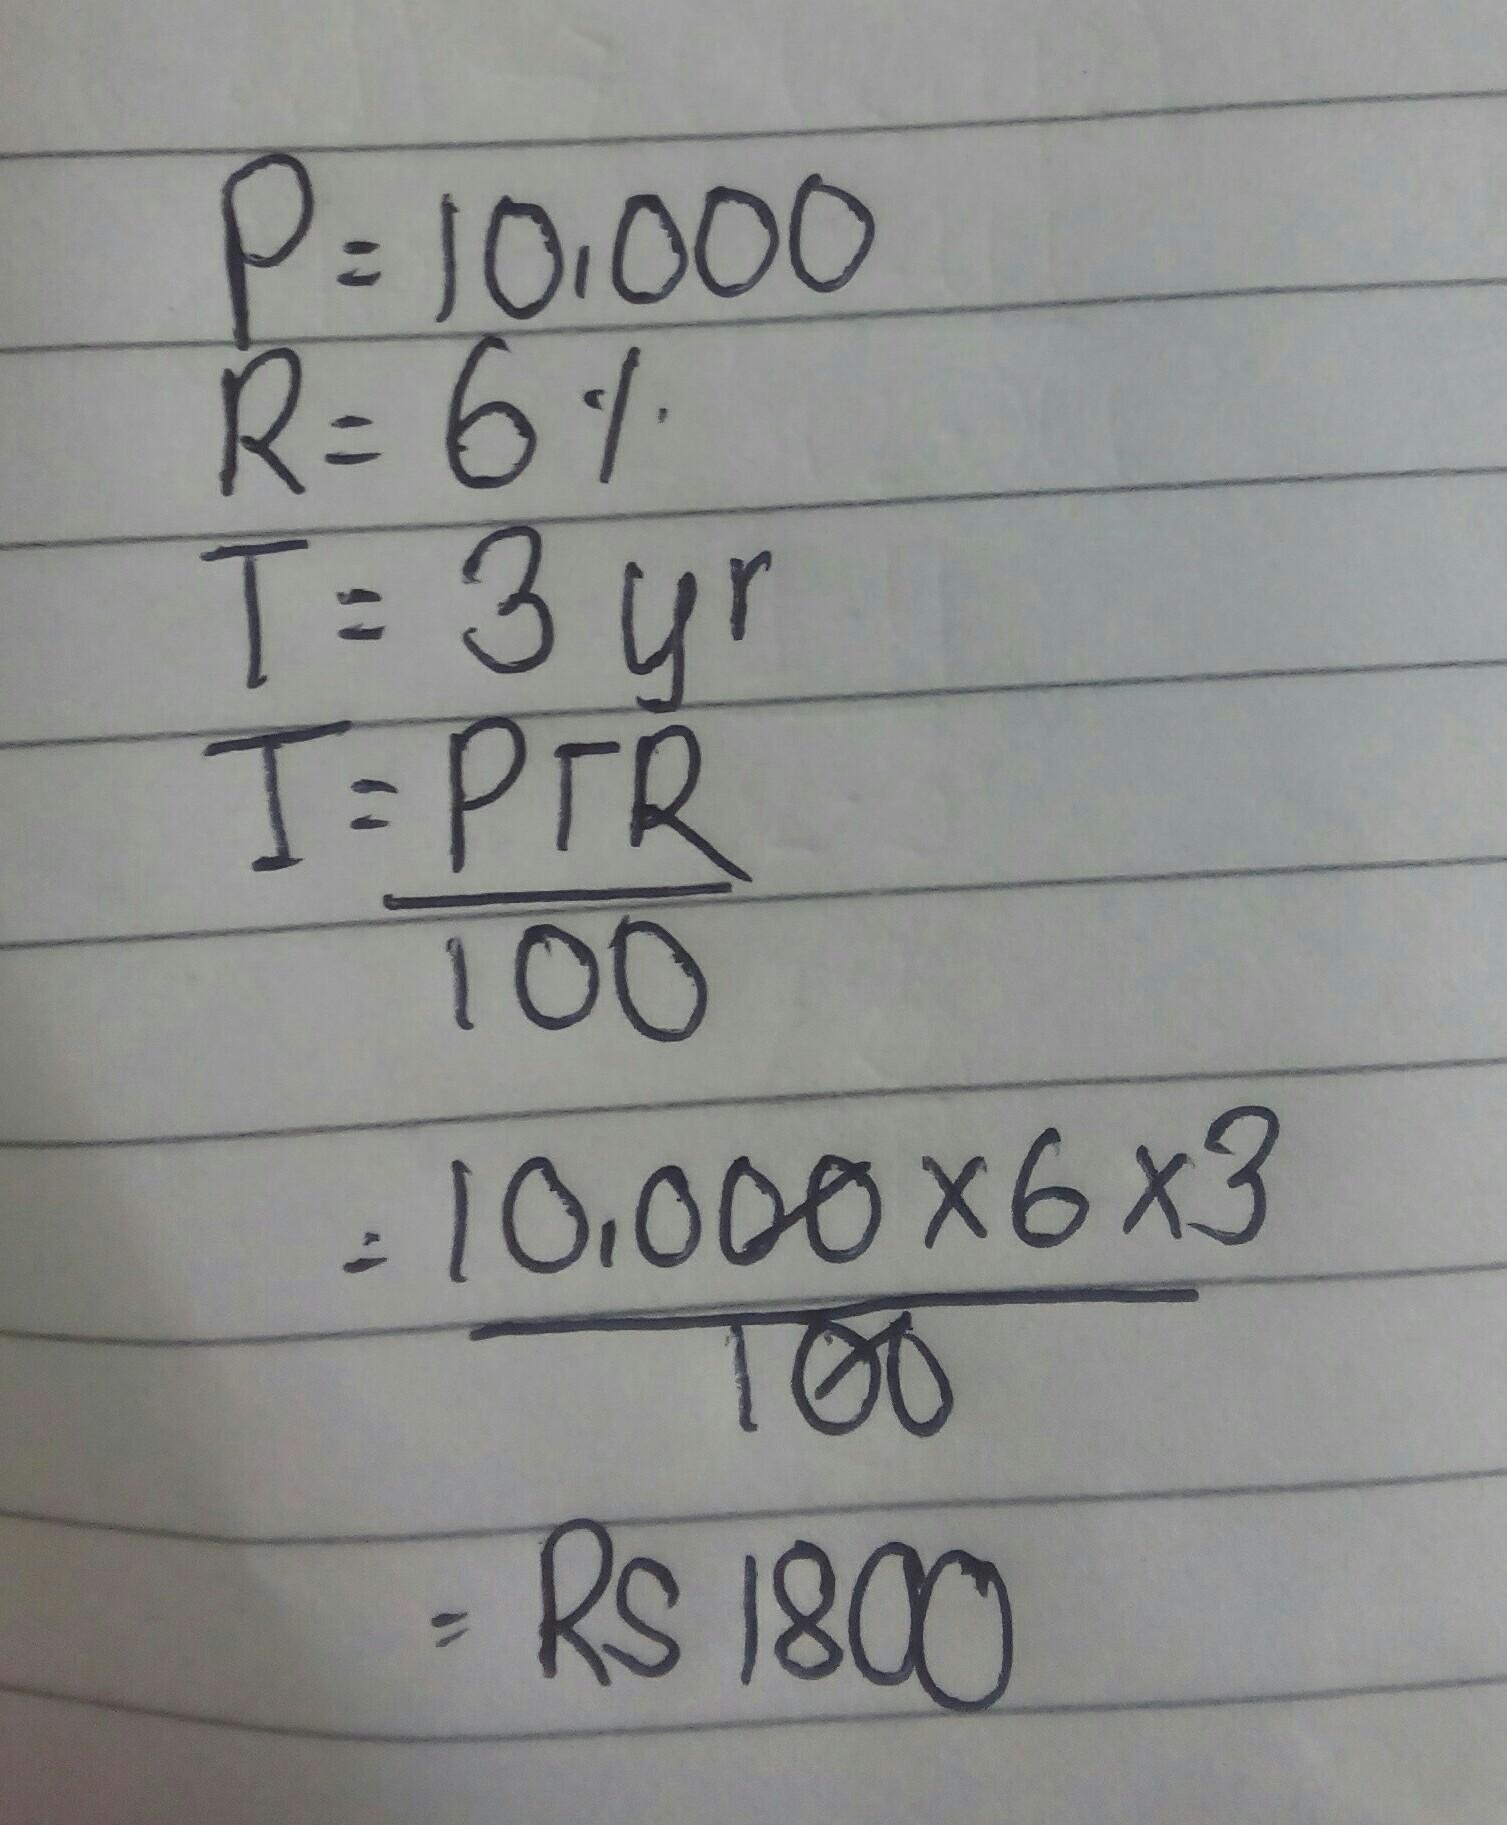 P = 10,000
R = 6 %
T = 3 yr
I = PTR
100
= 10,000 x 6 x 3
100
= Rs 1800